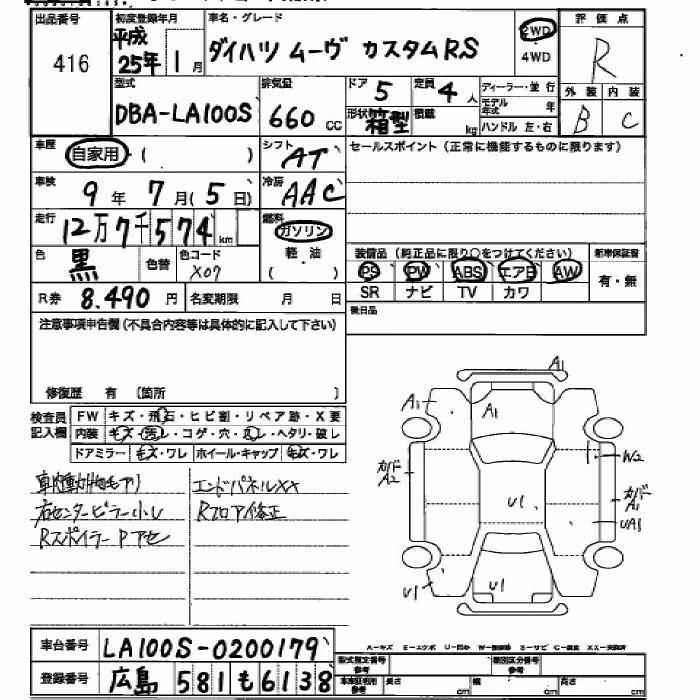 出品番号 初度登録年月 車名・グレード 評価点
416 平成25年1月 ダイハツ ムーヴ カスタムRS 2WD 4WD R
型式 排気量 ドア 5 定員 4人 ディーラー・並行 外装 内装
DBA-LA100S 660cc 形状 箱型 積載 kg モデル年式 年 B C
ハンドル 左・右
車歴 自家用・( ) シフト AT セールスポイント(正常に機能するものに限ります)
車検 9年7月(5日) 冷房 AAC
走行 12万7千574km 燃料 ガソリン・軽・油( )
色 黒 色替 色コード X07
装備品(純正品に限り○をつけてください) 新車保証書
PS PW ABS エアB AW 有・無
SR ナビ TV カワ
R券 8.490円 名変期限 月 日 後日品
注意事項申告欄(不具合内容等は具体的に記入して下さい)
修復歴 有 〔箇所 〕
検査員記入欄
FW キズ・飛石・ヒビ割・リペア跡・X要
内装 キズ・汚レ・コゲ・穴・スレ・ヘタリ・破レ
ドアミラー キズ・ワレ ホイール・キャップ キズ・ワレ
エンドパネルXX
右センターピラー小U Rフロア修正
Rスポイラー Pアセ
A1
A1
A1
カバドA2
W2
カバドA1
U1
UA1
U1
U1
A…キズ E…エクボ U…凹み S…サビ XX…交換済
車台番号 LA100S-0200179
登録番号 広島 581 も 6138
型式指定番号 参考 類別区分番号 参考
車庫証明用 参考 長さ cm 幅 cm 高さ cm